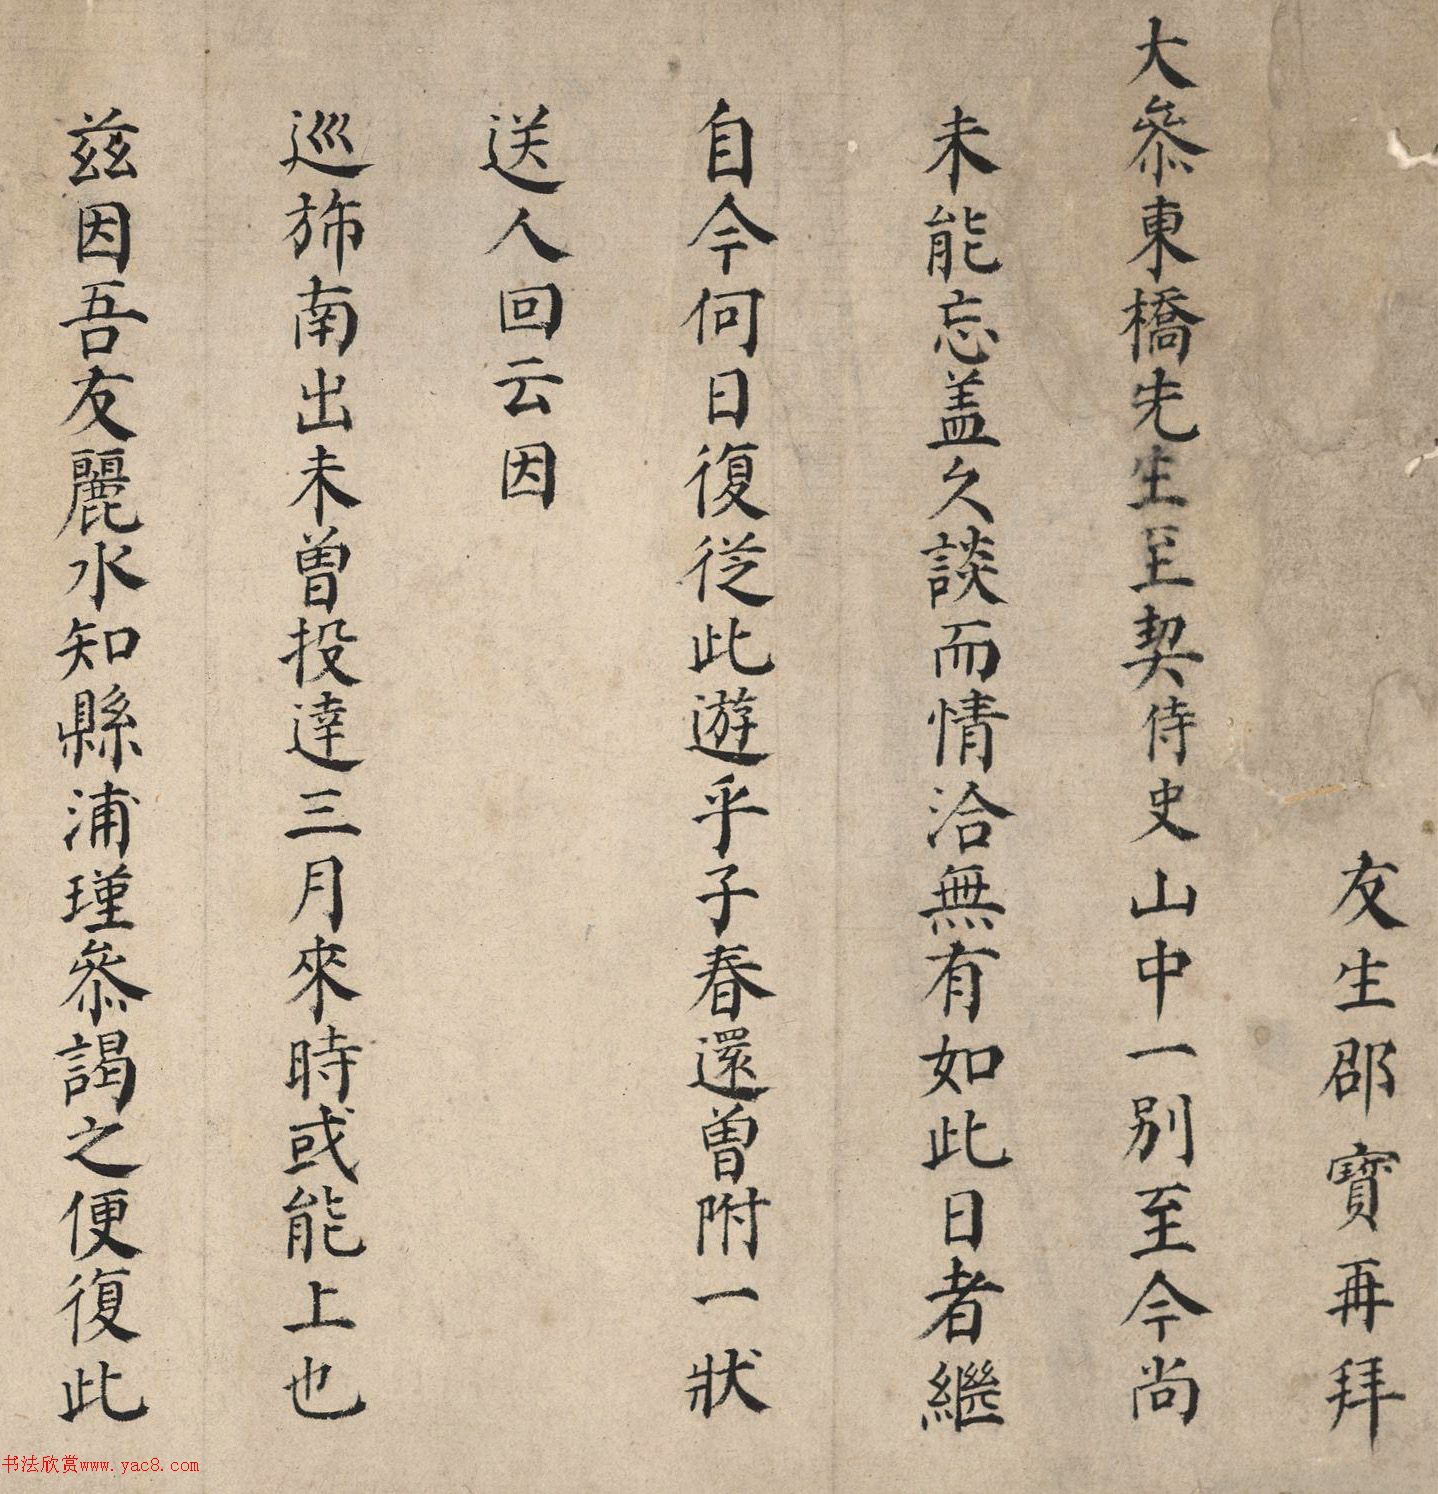 友生邵寶再拜
大叅東橋先生至契侍史山中一别至今尚
未能忘盖久談而情洽無有如此日者繼
自今何日復從此遊乎子春還曾附一狀
送人回云因
巡斾南出未曾投達三月來時或能上也
兹因吾友麗水知縣浦瑾叅謁之便復此
书法欣赏www.yac8.com